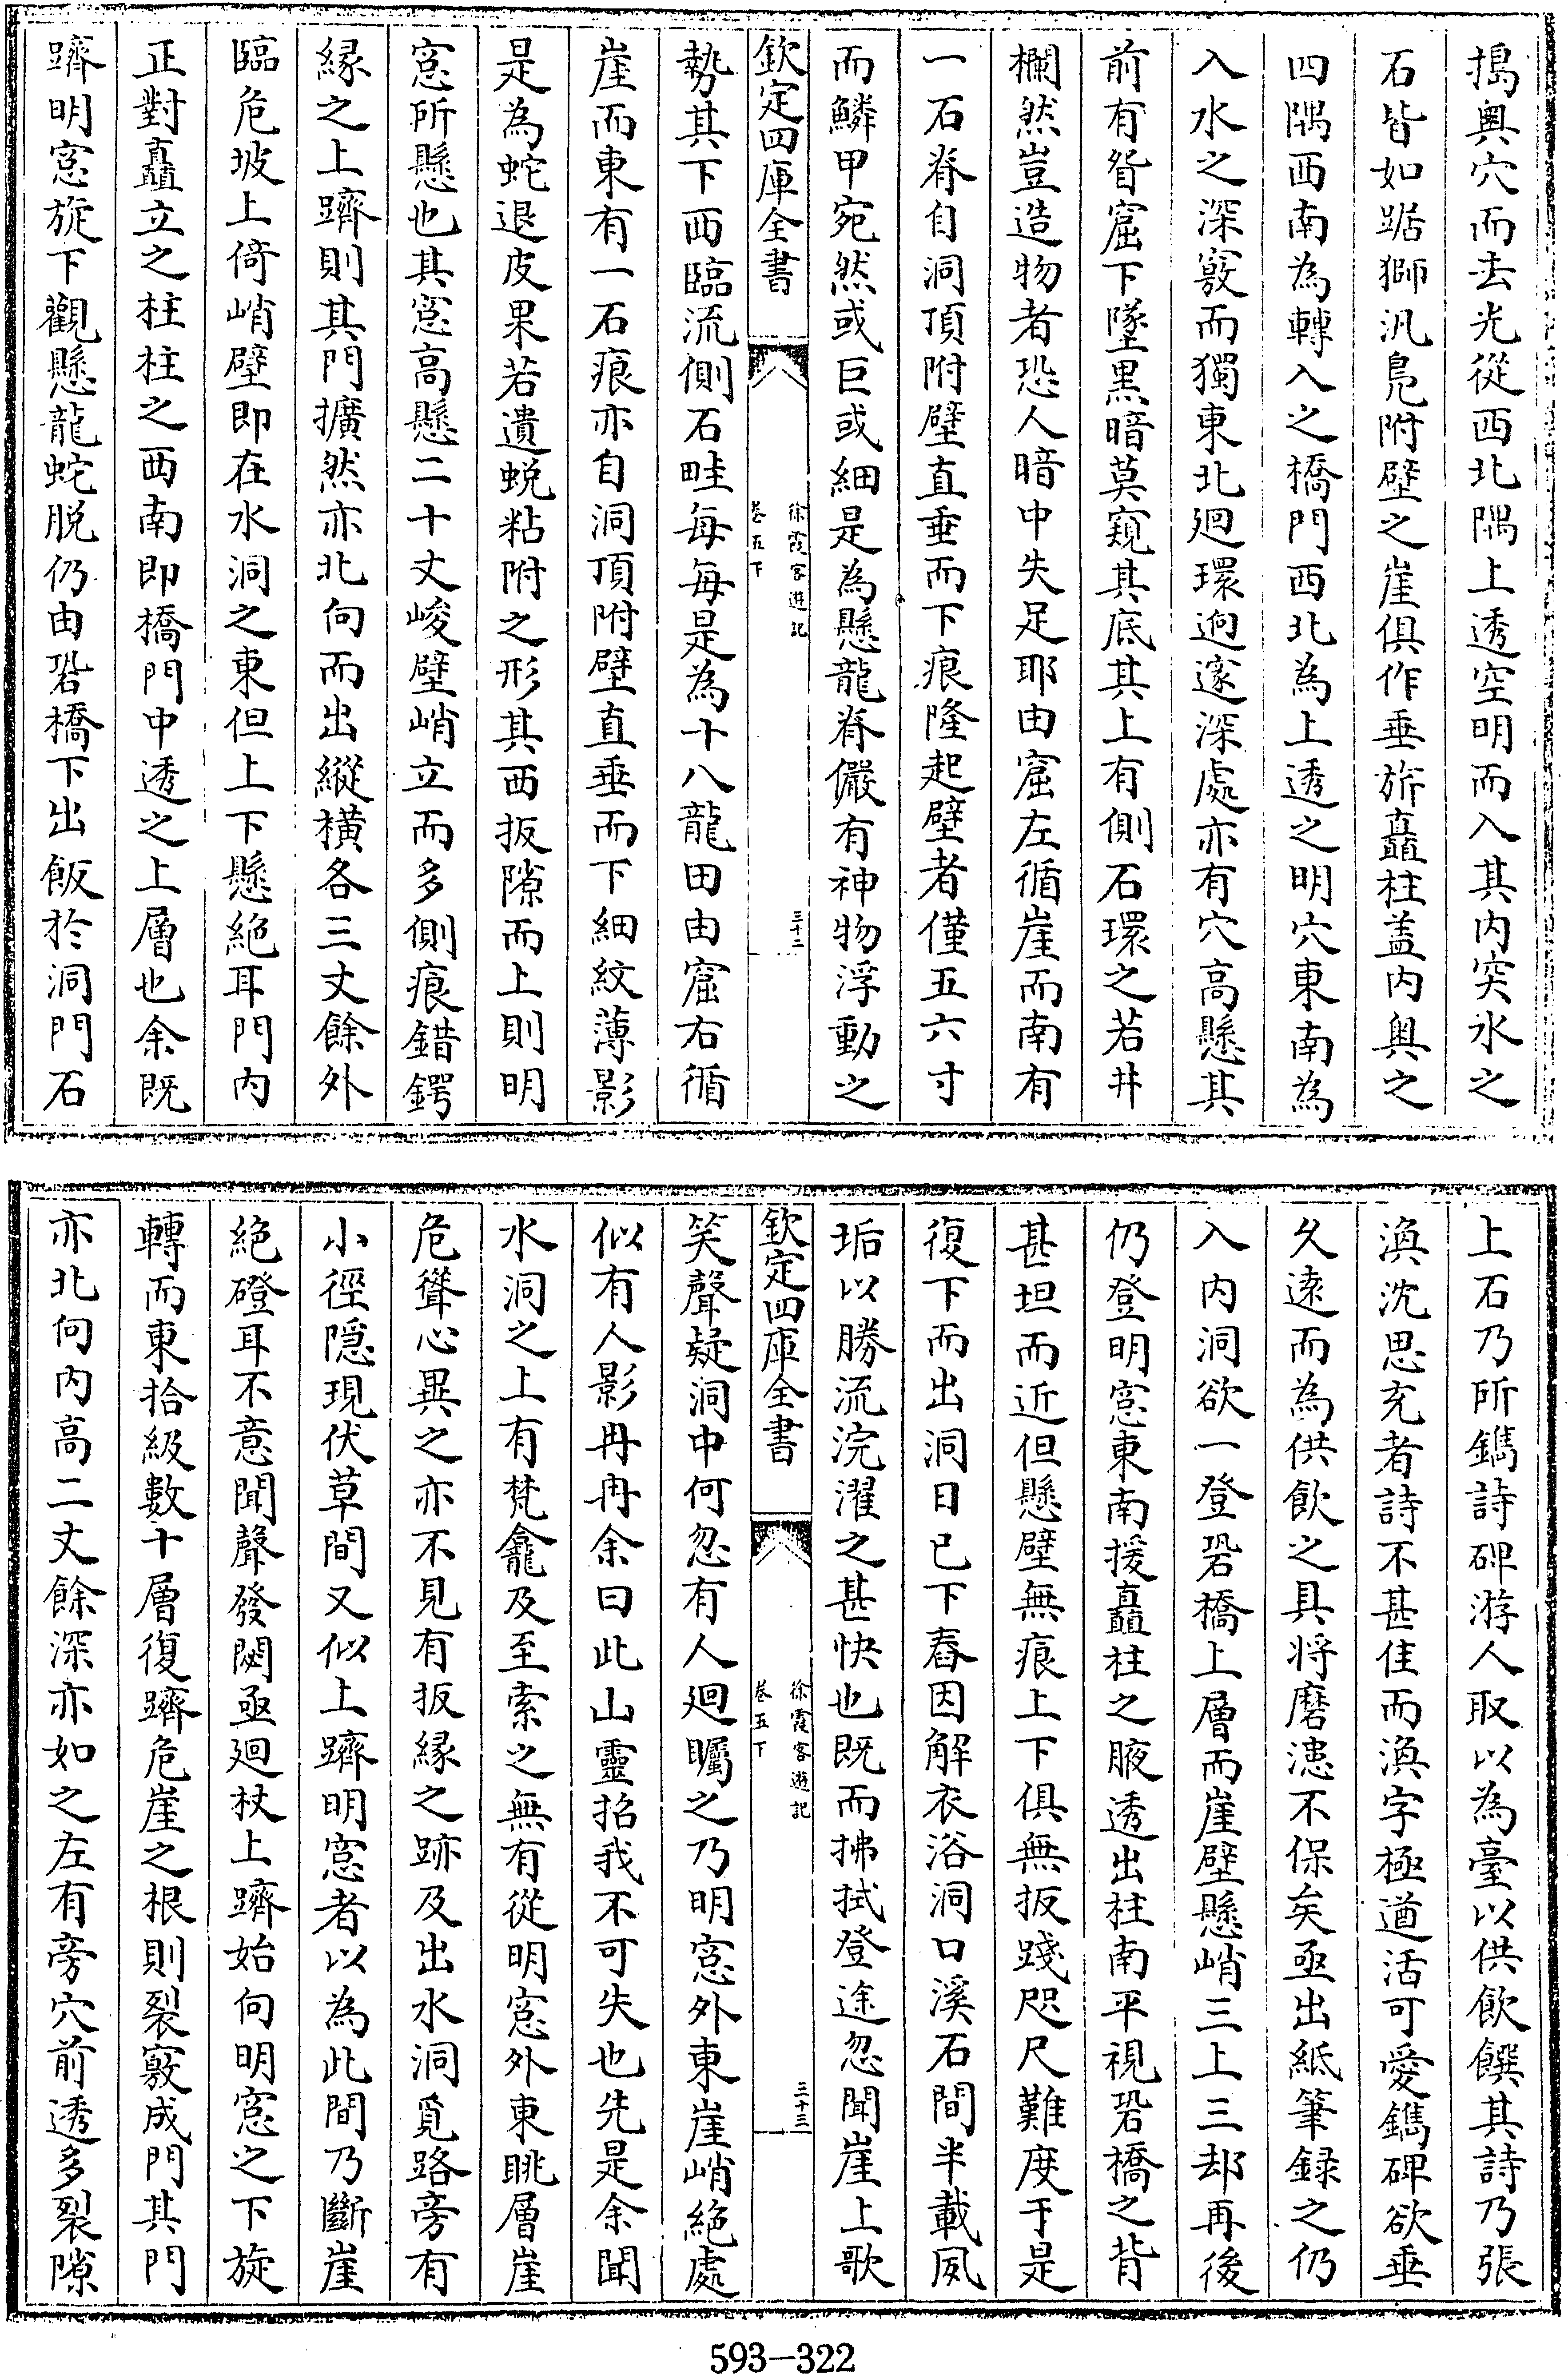 搗奥穴而去光從西北隅上透空明而入其内突水之
石皆如踞獅汎鳬附壁之崖俱作垂旂矗柱盖内奥之
四隅西南為轉入之橋門西北為上透之明穴東南為
入水之深竅而獨東北廻環逈邃深處亦有穴高懸其
前有眢窟下墜黒暗莫窺其底其上有側石環之若井
欄然豈造物者恐人暗中失足耶由窟左循崖而南有
一石脊自洞頂附壁直垂而下痕隆起壁者僅五六寸
而鱗甲宛然或巨或細是為懸龍脊儼有神物浮動之
欽定四庫全書
徐霞客遊記
卷五下
三十二
勢其下西臨流側石畦每每是為十八龍田由窟右循
崖而東有一石痕亦自洞頂附壁直垂而下細紋薄影
是為蛇退皮果若遺蜕粘附之形其西扳隙而上則明
窓所懸也其窓高懸二十丈峻壁峭立而多側痕錯鍔
緣之上躋則其門擴然亦北向而出縱横各三丈餘外
臨危坡上倚峭壁即在水洞之東但上下懸絶耳門内
正對矗立之柱柱之西南即橋門中透之上層也余既
躋明窓旋下觀懸龍蛇脱仍由砦橋下出飯於洞門石
上石乃所鐫詩碑游人取以為臺以供飲饌其詩乃張
渙沈思充者詩不甚佳而渙字極遒活可愛鐫碑欲垂
久逺而為供飲之具将磨漶不保矣亟出紙筆録之仍
入内洞欲一登砦橋上層而崖壁懸峭三上三却再後
仍登明窓東南援矗柱之腋透出柱南平視砦橋之背
甚坦而近但懸壁無痕上下俱無扳踐咫尺難度于是
復下而出洞日已下舂因解衣浴洞口溪石間半載夙
垢以勝流浣濯之甚快也既而拂拭登途忽聞崖上歌
欽定四庫全書
徐霞客遊記
卷五下
三十三
笑聲疑洞中何忽有人廻矚之乃明窓外東崖峭絶處
似有人影冉冉余曰此山靈招我不可失也先是余聞
水洞之上有梵龕及至索之無有從明窓外東眺層崖
危聳心異之亦不見有扳緣之跡及出水洞覓路旁有
小徑隠現伏草間又似上躋明窓者以為此間乃斷崖
絶磴耳不意聞聲發閟亟廻杖上躋始向明窓之下旋
轉而東拾級數十層復躋危崖之根則裂竅成門其門
亦北向内高二丈餘深亦如之左有旁穴前透多裂隙
593-322